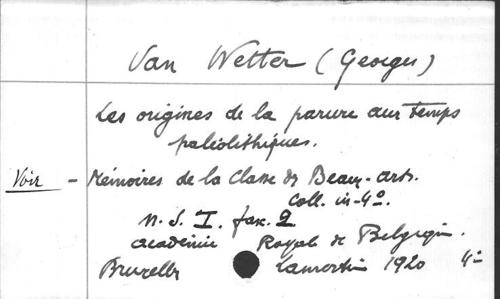 Van Wetter (Georges)
Les origines de la parure aux temps
paléolithiques.
Voir - Mémoires de la Classe des Beaux-arts.
Coll. in-4º.
N. S. I. fasc. 2
Académie Royale de Belgique.
Bruxelles Lamertin 1920 4º